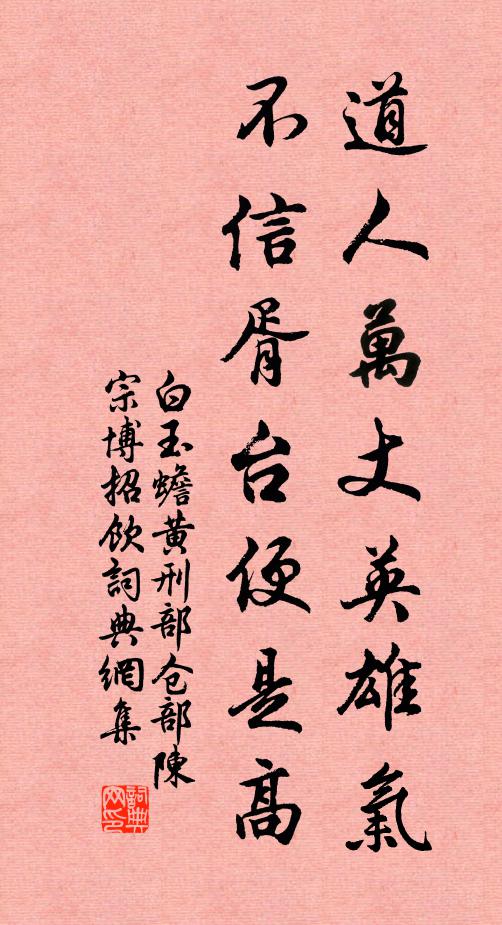 道人萬丈英雄氣
不信胥台便是高
白玉蟾黄刑部仓部陳
宗博招飲詞典網集
詞典网印